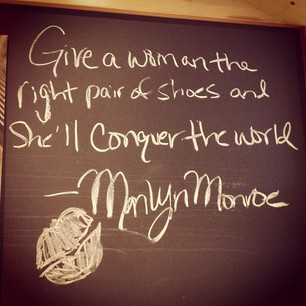 Give a woman the
right pair of shoes and
She'll Conquer the world
- Marilyn Monroe